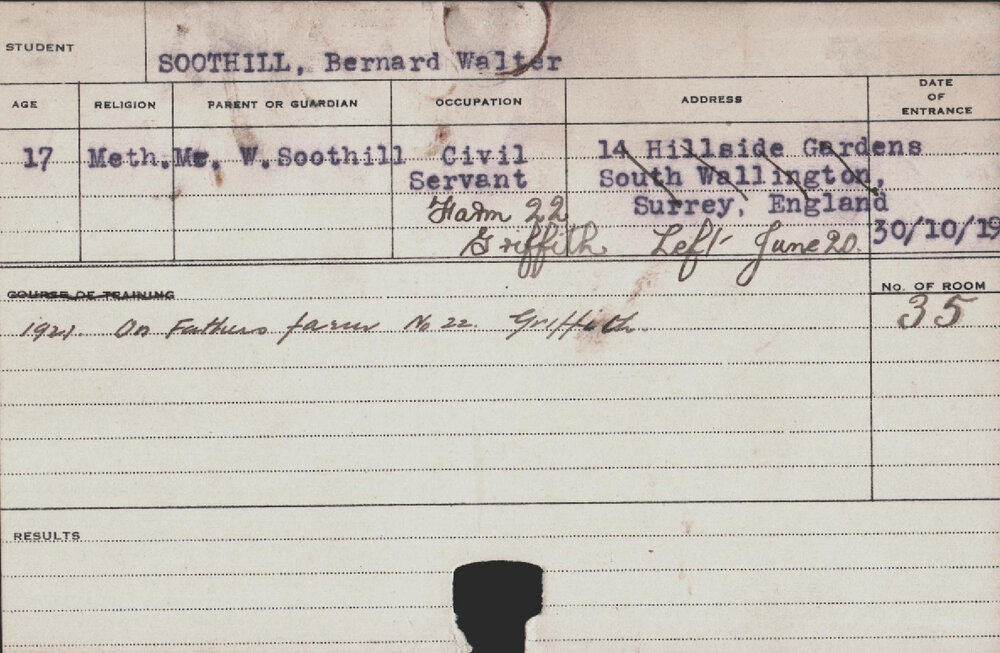 STUDENT
SOOTHILL, Bernard Walter
AGE RELIGION PARENT OR GUARDIAN OCCUPATION ADDRESS DATE OF ENTRANCE
17 Meth. Mr. W. Soothill Civil 14 Hillside Gardens
Servant South Wallington,
Farm 22 Surrey, England
Griffith Left June 20. 30/10/19
COURSE OF TRAINING No. OF ROOM
35
1921. On Fathers farm No 22. Griffith.
RESULTS